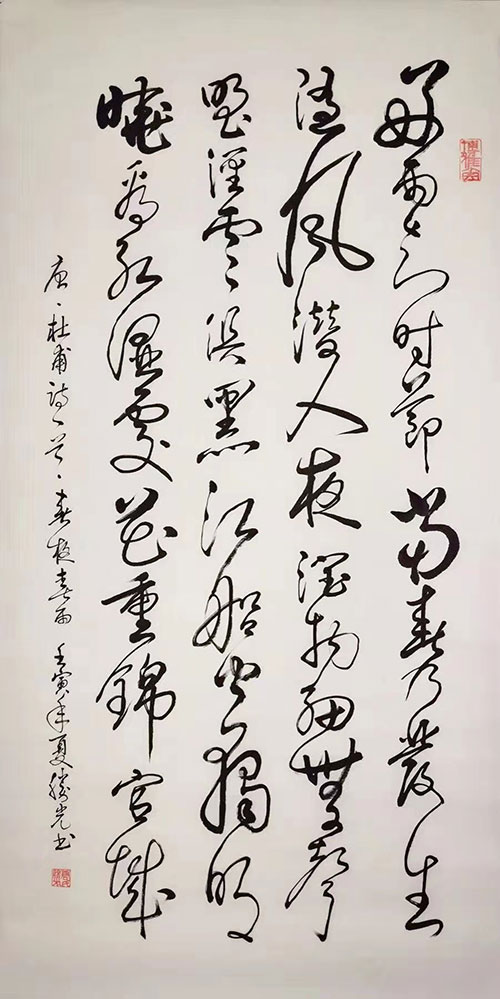 好雨知时節當春乃發生
随風潛入夜潤物細無聲
野徑雲俱黑江船火獨明
曉看紅濕處花重錦官城
唐·杜甫詩一首·春夜喜雨 壬寅年夏勝光书